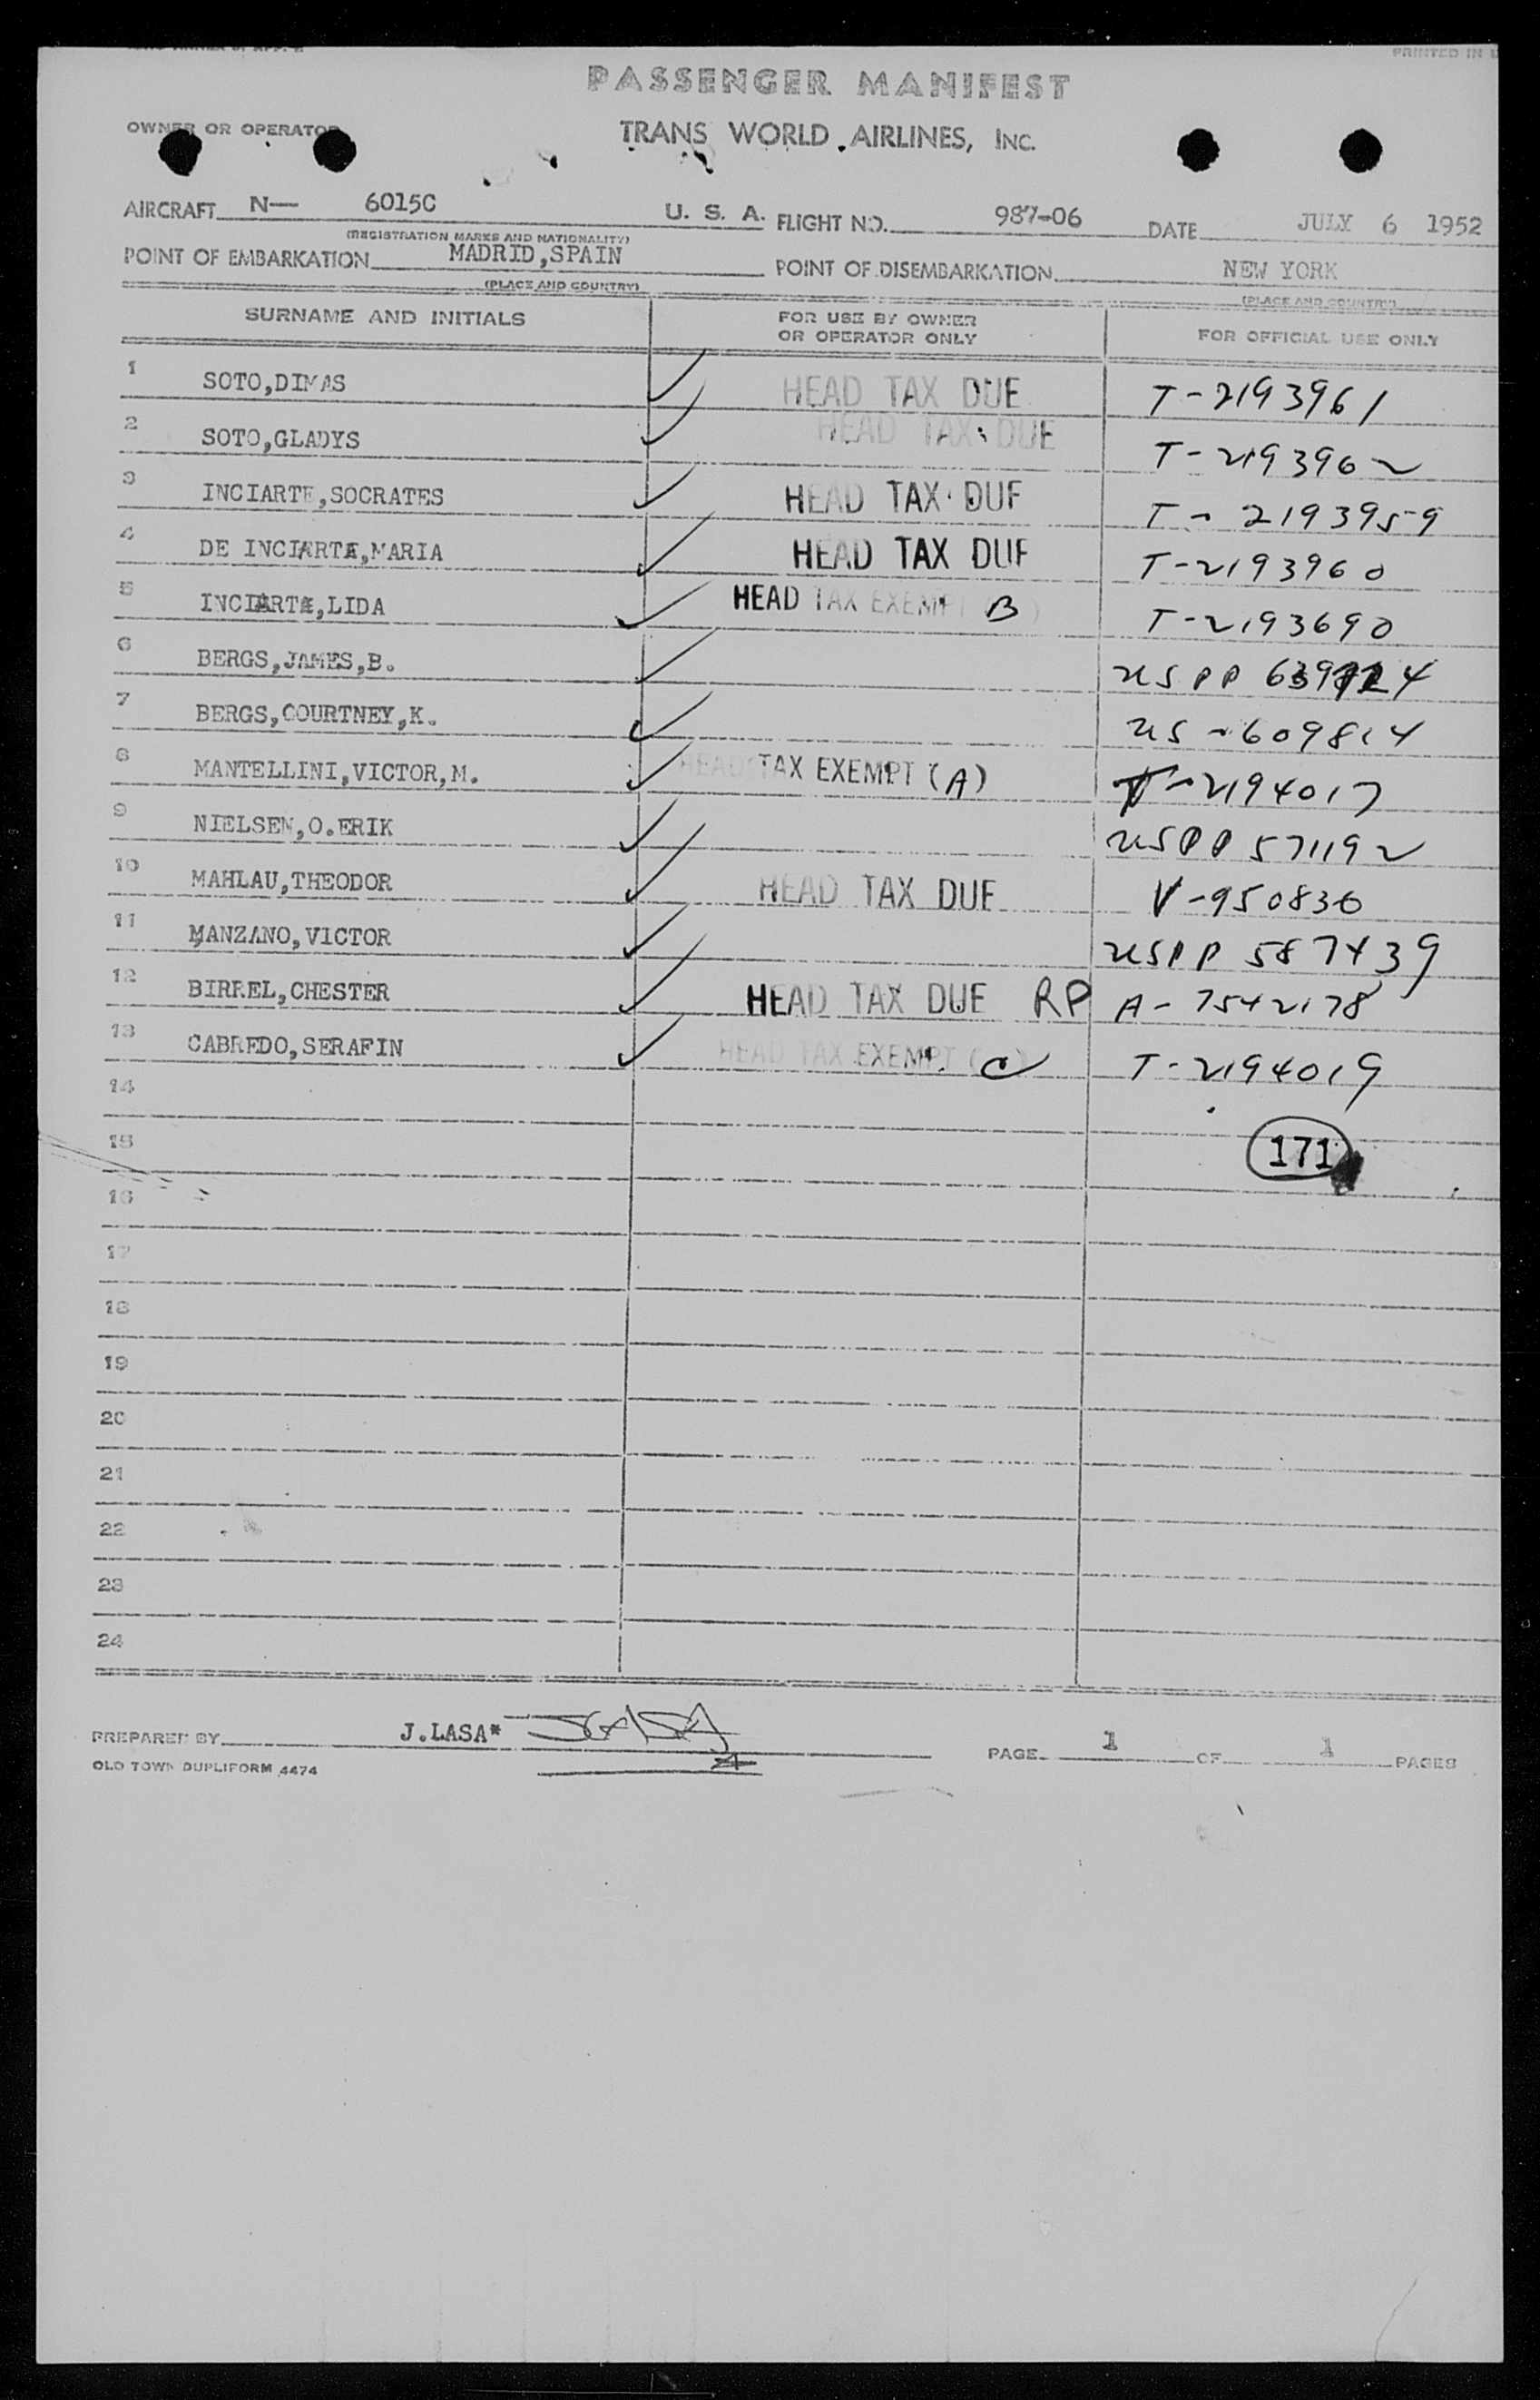 PRINTED IN U
PASSENGER MANIFEST
OWNER OR OPERATOR TRANS WORLD AIRLINES, INC.
AIRCRAFT N— 6015C U. S. A. FLIGHT NO. 987-06 DATE JULY 6 1952
(REGISTRATION MARKS AND NATIONALITY)
POINT OF EMBARKATION MADRID,SPAIN POINT OF DISEMBARKATION NEW YORK
(PLACE AND COUNTRY) (PLACE AND COUNTRY)
SURNAME AND INITIALS FOR USE BY OWNER OR OPERATOR ONLY FOR OFFICIAL USE ONLY
1 SOTO,DIMAS HEAD TAX DUE T-2193961
2 SOTO,GLADYS HEAD TAX DUE T-2193962
3 INCIARTE,SOCRATES HEAD TAX DUE T-2193959
4 DE INCIARTE,MARIA HEAD TAX DUE T-2193960
5 INCIARTE,LIDA HEAD TAX EXEMPT B T-2193690
6 BERGS,JAMES,B. US PP
7 BERGS,COURTNEY,K. US-609814
8 MANTELLINI,VICTOR,M. HEAD TAX EXEMPT (A) T-2194017
9 NIELSEN,O.ERIK USPP 571192
10 MAHLAU,THEODOR HEAD TAX DUE V-950836
11 MANZANO,VICTOR USPP 587439
12 BIRREL,CHESTER HEAD TAX DUE RP A-7542178
13 CABREDO,SERAFIN HEAD TAX EXEMPT C T-2194019
14
15 171
16
17
18
19
20
21
22
23
24
PREPARED BY J.LASA* PAGE 1 OF 1 PAGES
OLD TOWN DUPLIFORM 4474